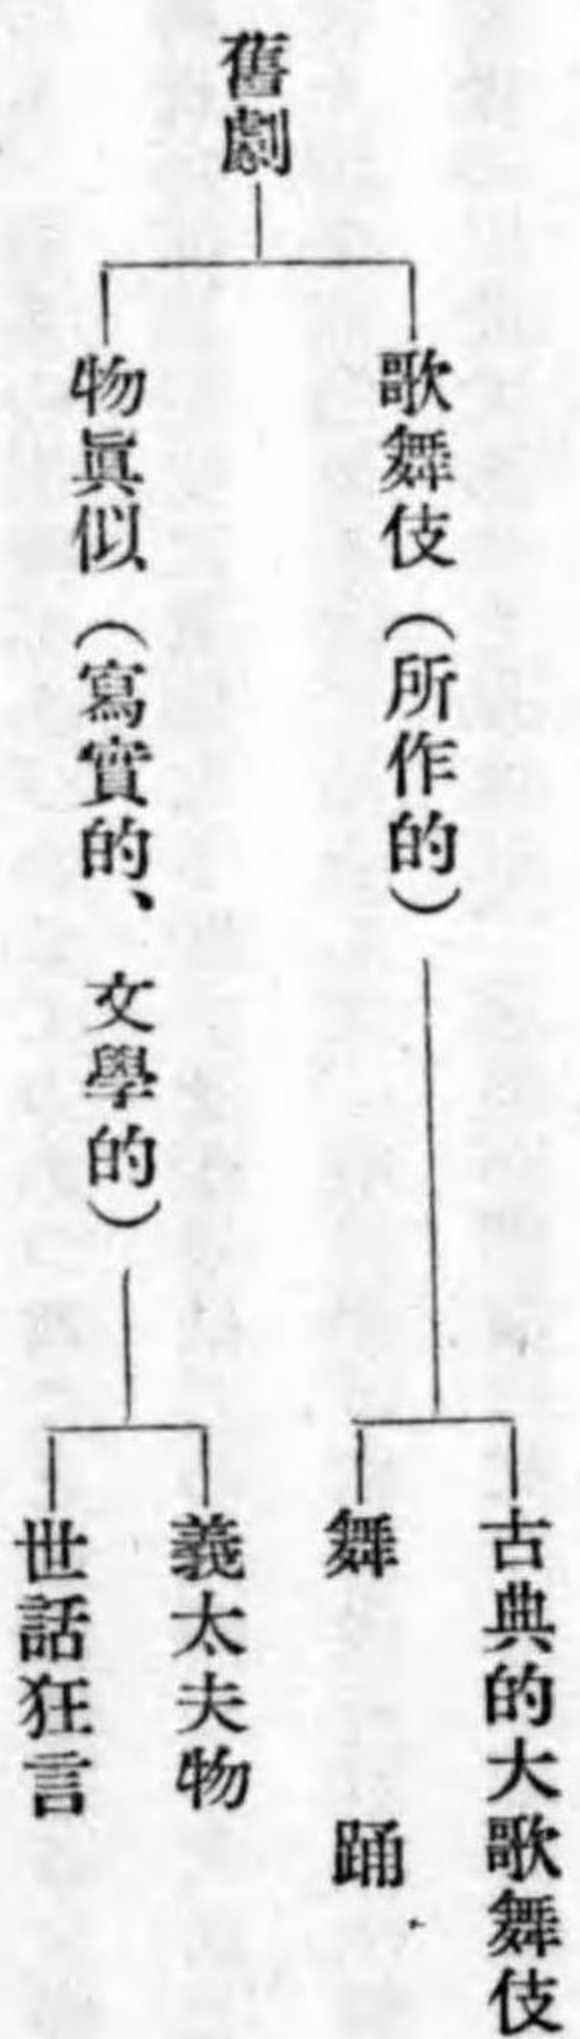 舊劇
歌舞伎（所作的）
古典的大歌舞伎
舞踊
物眞似（寫實的、文學的）
義太夫物
世話狂言